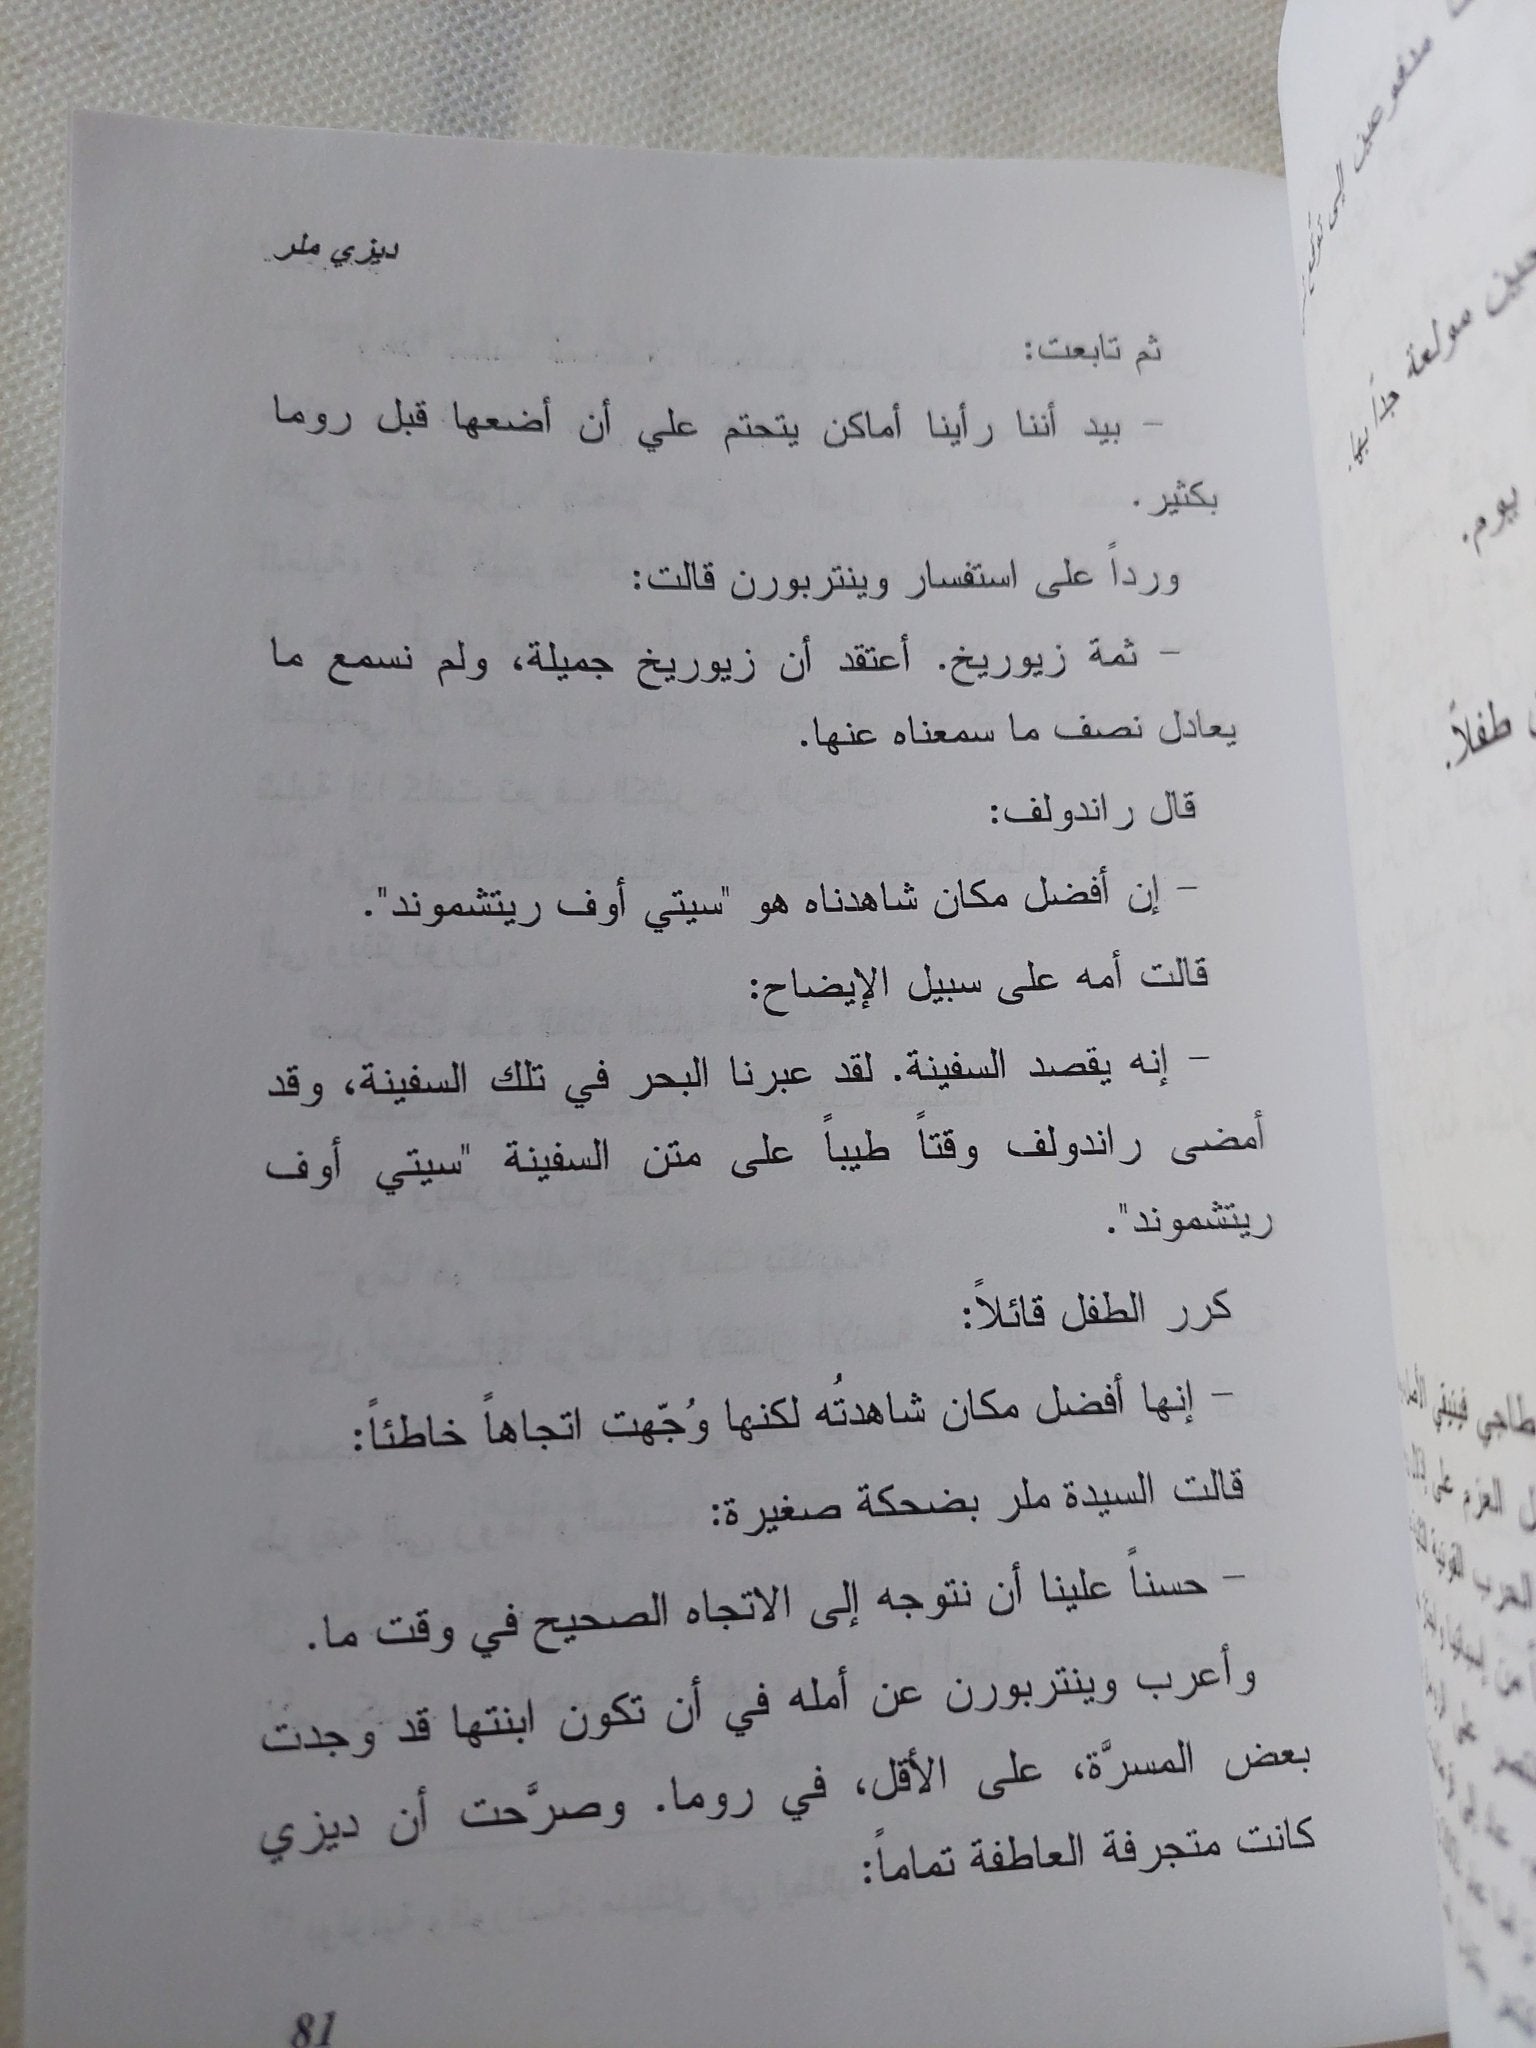 ديزي ملر
ثم تابعت:
- بيد أننا رأينا أماكن يتحتم علي أن أضعها قبل روما
بكثير.
ورداً على استفسار وينتربورن قالت:
- ثمة زيوريخ. أعتقد أن زيوريخ جميلة، ولم نسمع ما
يعادل نصف ما سمعناه عنها.
قال راندولف:
- إن أفضل مكان شاهدناه هو "سيتي أوف ريتشموند".
قالت أمه على سبيل الإيضاح:
- إنه يقصد السفينة. لقد عبرنا البحر في تلك السفينة، وقد
أمضى راندولف وقتاً طيباً على متن السفينة "سيتي أوف
ريتشموند".
كرر الطفل قائلاً:
- إنها أفضل مكان شاهدتُه لكنها وُجّهت اتجاهاً خاطئاً:
قالت السيدة ملر بضحكة صغيرة:
- حسناً علينا أن نتوجه إلى الاتجاه الصحيح في وقت ما.
وأعرب وينتربورن عن أمله في أن تكون ابنتها قد وجدت
بعض المسرَّة، على الأقل، في روما. وصرَّحت أن ديزي
كانت متجرفة العاطفة تماماً:
81
مولعة جداً بها.
يوم.
طفلاً.